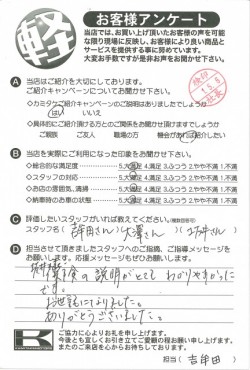 軽
お客様アンケート
当店では、お買い上げ頂いたお客様の声を可能
な限り現場に反映し、お客様により良い商品と
サービスを提供する事に努めています。
大変お手数ですが是非お声をお聞かせ下さい。
A 当店はご紹介を大切にしております。
ご紹介キャンペーンについてお聞かせ下さい。
◇カミタケご紹介キャンペーンの説明はありましたでしょうか
はい いいえ
◇具体的にご紹介頂ける方とのご関係をお聞かせ頂けますでしょうか
ご親族 ご友人 職場の方 機会があれば紹介したい
B 当店を実際にご利用になった印象をお聞かせ下さい。
◇総合的な満足度 5.大満足 4.満足 3.ふつう 2.やや不満 1.不満
◇スタッフの対応 5.大満足 4.満足 3.ふつう 2.やや不満 1.不満
◇お店の雰囲気、清掃 5.大満足 4.満足 3.ふつう 2.やや不満 1.不満
◇納車時のお車の状態 5.大満足 4.満足 3.ふつう 2.やや不満 1.不満
C 評価したいスタッフがいれば教えてください。(複数回答可)
スタッフ名( 吉田さん)(大澤さん)(
D 担当させて頂きましたスタッフへのご指摘、ご指導メッセージ
をお願いします。応援メッセージもぜひお願いします。
の説明がとても わかりやすかった
です。
お世話になりました。
ありがとうございました。
K
ご協力に心よりお礼を申し上げます。
今後とも宜しくお引き立てご愛顧の程お願い申し上げます。
またのご来店を心からお待ちしております。
担当( 吉牟田 )